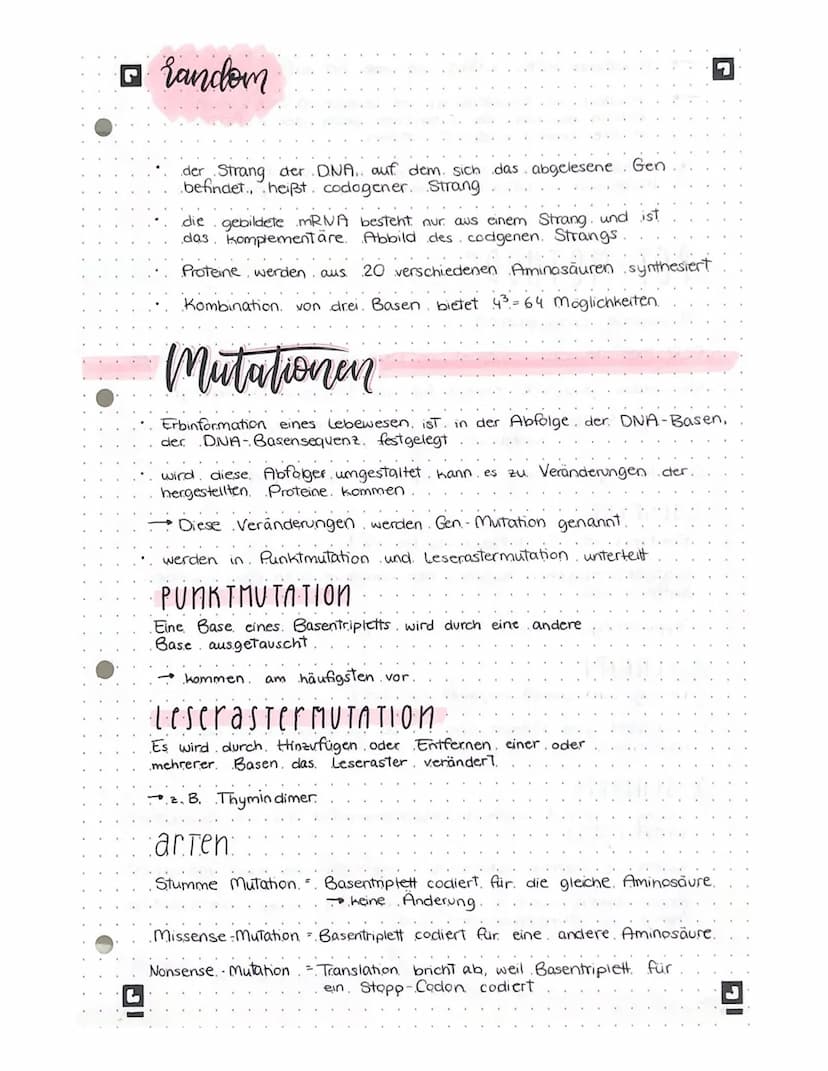 random
• der Strang der DNA, auf dem sich das abgelesene Gen
befindet, heißt codogener Strang
• die gebildete mRNA besteht nur aus einem Strang und ist
das komplementäre Abbild des codgenen Strangs
• Proteine werden aus 20 verschiedenen Aminosäuren synthesiert
• Kombination von drei Basen bietet 4³=64 Möglichkeiten
Mutationen
• Erbinformation eines Lebewesen ist in der Abfolge der DNA-Basen,
der DNA-Basensequenz festgelegt
• wird diese Abfolger umgestaltet kann es zu Veränderungen der
hergestellten Proteine kommen
→ Diese Veränderungen werden Gen-Mutation genannt
• werden in Punktmutation und Leserastermutation unterteilt
PUNKTMUTATION
Eine Base eines Basentripletts wird durch eine andere
Base ausgetauscht
→ kommen am häufigsten vor
Leserastermutation
Es wird durch Hinzufügen oder Entfernen einer oder
mehrerer Basen das Leseraster verändert
→ z.B. Thymindimer
Arten:
Stumme Mutation = Basentriplett codiert für die gleiche Aminosäure
→ keine Änderung
Missense-Mutation = Basentriplett codiert für eine andere Aminosäure
Nonsense-Mutation = Translation bricht ab, weil Basentriplett für
ein Stopp-Codon codiert